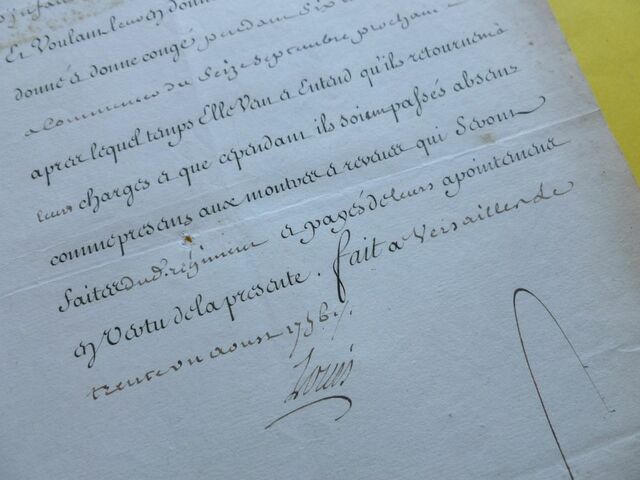 Et Voulant leur en donner
donné et donne congé pendant Six
a Commencer du Seize Septembre prochain
apres lequel temps Elle Veut et Entend qu'ils retournent a
leurs charges et que cependant ils soient passés absens
comme presens aux montres et reveües qui Seront
faites dud. régiment et payés de leurs apointemens
en Vertu de la presente. fait a Versailles le
trente un aoust 1756./.
Louis